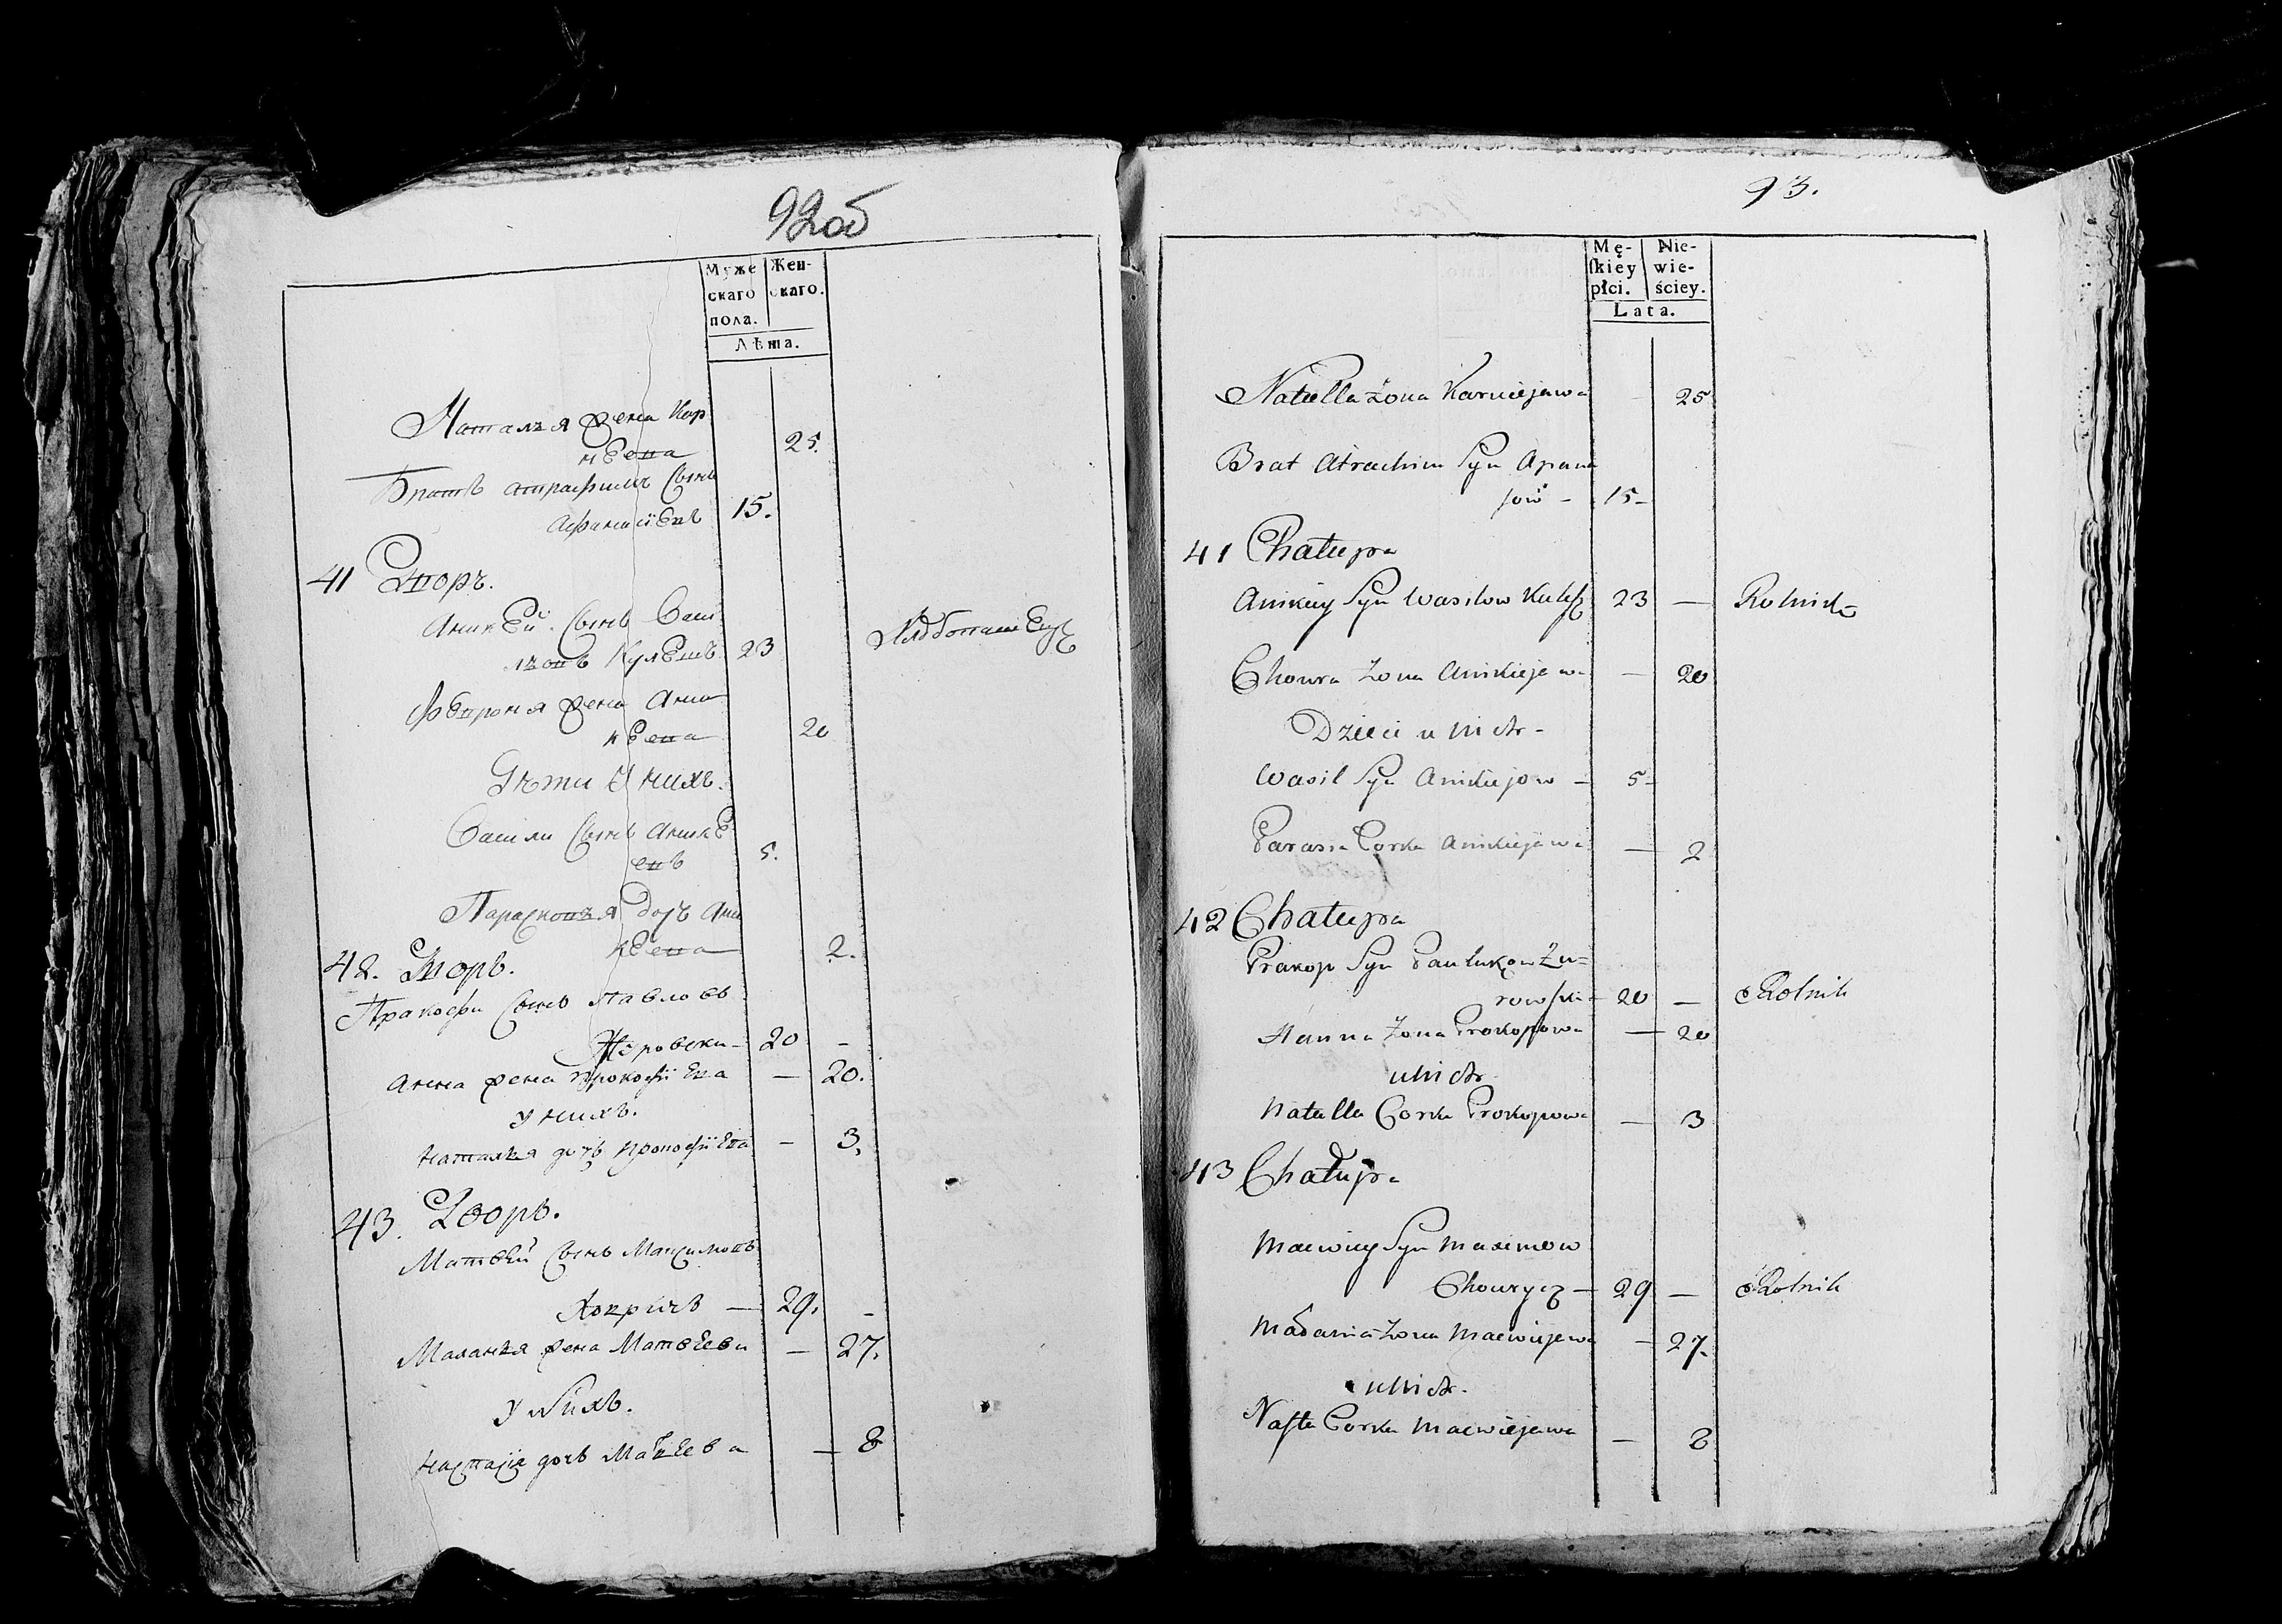 92об
Муже Жен-
скаго скаго.
пола.
Лѣта.
Наталья жена Кор
нѣева 25.
Братъ Атрафимъ Сынъ
Афанасіевъ 15.
41 Дворъ.
Аникей Сынъ Васи
льовъ Кулешъ 23 Хлѣбопашецъ
Февроня жена Ани
кеева 20
Дѣти у нихъ.
Васили Сынъ Аникѣ
евъ 5.
Парасковья Дочъ Ани
кеева 2.
42. Дворъ.
Пракофи Сынъ Павловъ
Журовски - 20 -
Анна жена Прокофіева — 20.
у нихъ.
Наталья дочъ Прокофіева — 3.
43. Дворъ.
Матвей Сынъ Максимовъ
Ховричъ — 29. -
Маланья жена Матвеева — 27.
у нихъ.
Настасія дочъ Матвеева — 8
93.
Mę- Nie-
ſkiey wie-
płci. ściey.
Lata.
Natalla Żona Karniejewa 25
Brat Atrachim Syn Apana
ſow - 15 -
41 Chałupa
Anikiey Syn Wasilow Kulesz 23 — Rolnik
Chowra Żona Anikiejewa — 20
Dzieci u nich -
Wasil Syn Anikiejow - 5 -
Parasia Corka Anikiejewa — 2
42 Chałupa
Prakop Syn Pawlukow Żu=
rowſki - 20 — Rolnik
Hanna Żona Prokopowa — 20
u nich
Natalla Corka Prokopowa — 3
43 Chałupa
Maciwiey Syn Maximow
Chowrycz — 29 — Rolnik
Małania Żona Maciwiejewa — 27.
u nich.
Naſta Corka Maciwiejewa — 8